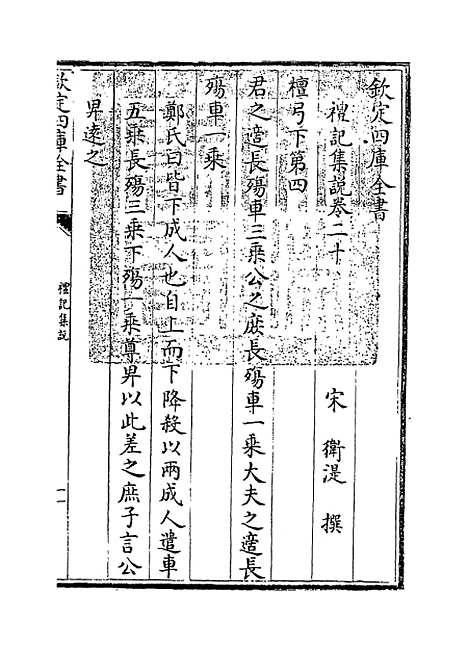 欽定四庫全書
禮記集說卷二十
宋 衛湜 撰
檀弓下第四
君之適長殤車三乘公之庶長殤車一乘大夫之適長
殤車一乘
鄭氏曰皆下成人也自上而下降殺以兩成人遣車
五乘長殤三乘下殤一乘尊卑以此差之庶子言公
卑逺之
欽定四庫全書
禮記集說
一